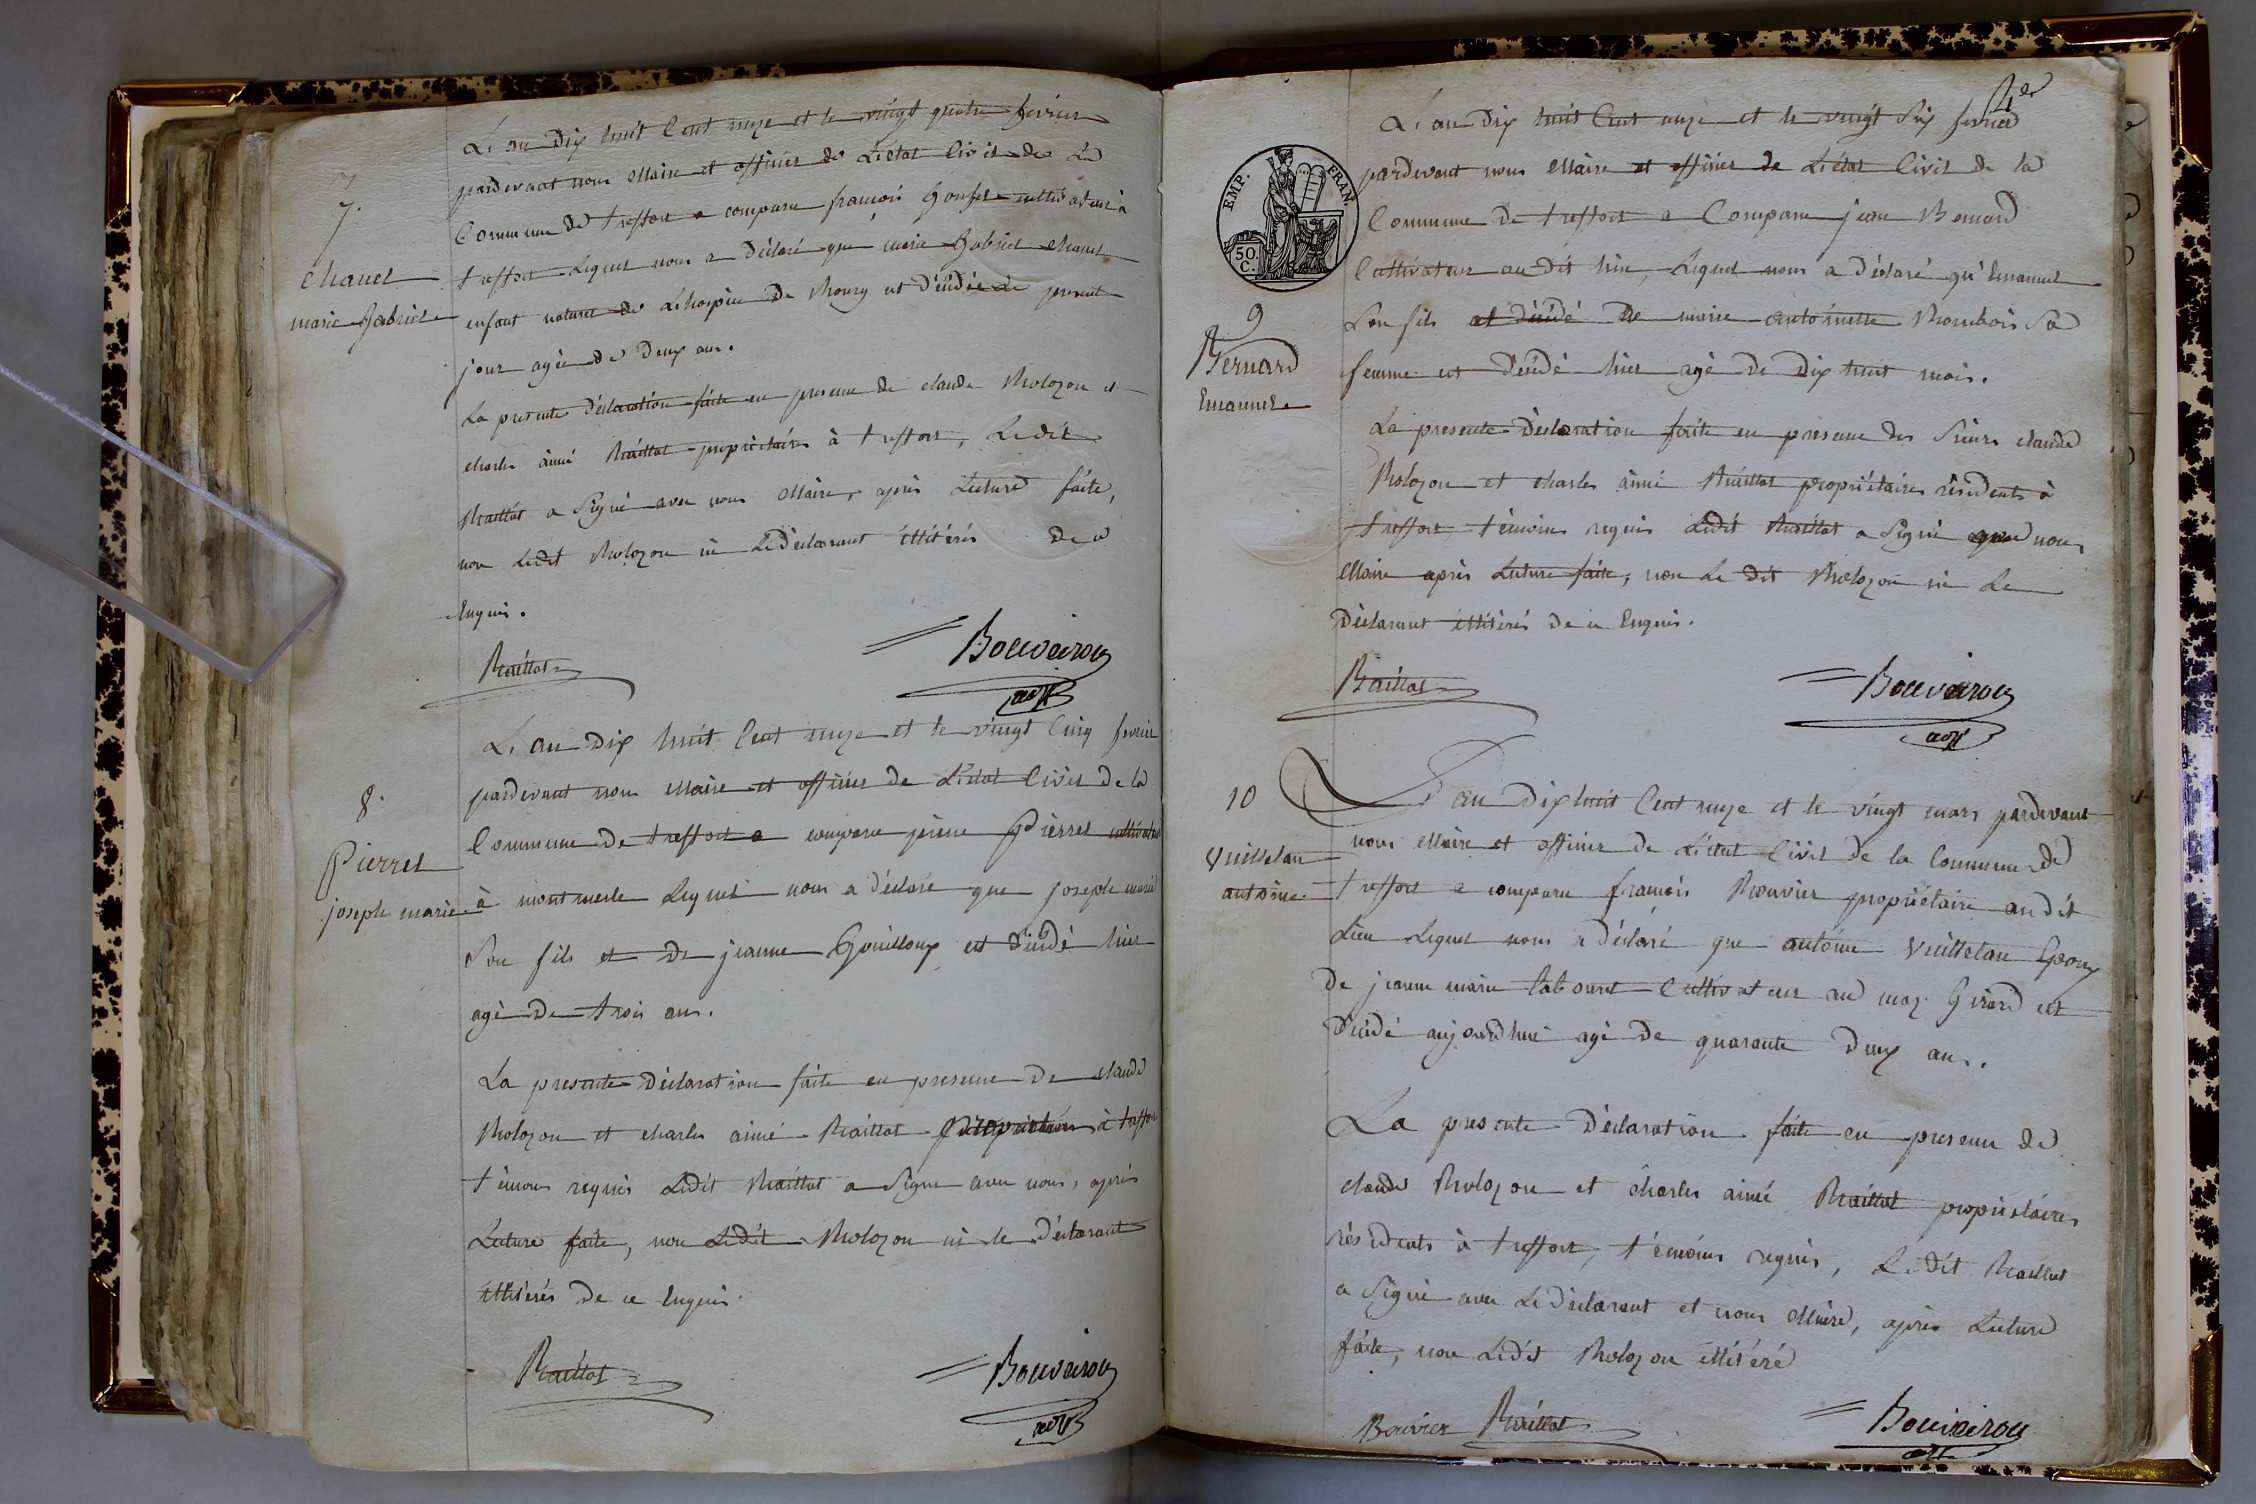 7.
chanel
marie Gabriel
L'an dix huit Cent onze et le vingt quatre fevrier
pardevant nous Maire et officier de L'état Civil de La
Commune de treffort a comparu françois Gonfet cultivateur à
treffort Lequel nous a déclaré que marie Gabriel chanel
enfant naturel de Lhospice de Bourg est décédée ce present
jour agée de deux ans.
La presente déclaration faite en presence de claude Molozon et
charles aimé Maillat propriétaires à treffort, Ledit
Maillat a Signé avec nous Maire, après Lecture faite,
non Ledit Molozon ni Ledéclarant illitérés de ce
Enquis.
Maillat
Bouveirou
adjt
8.
Pierrel
joseph marie
L'an dix huit Cent onze et le vingt Cinq fevrier
pardevant nous Maire et officier de L'état Civil de la
Commune de treffort a comparu pierre Pierrel cultivateur
à montmerle Lequel nous a déclaré que joseph marie
Son fils et de jeanne Gouilloux est décédé hier
agé de trois ans.
La presente Déclaration faite en presence de claude
Molozon et charles aimé Maillat propriétaires à treffort
témoins requis Ledit Maillat a Signé avec nous, après
Lecture faite, non Ledit Molozon ni le déclarant
illitérés de ce Enquis.
Maillat
Bouveirou
adjt
EMP. FRAN.
50.
C.
9
Bernard
Emanuel
L'an dix huit Cent onze et le vingt Six fevrier
pardevant nous Maire et officier de L'état Civil de la
Commune de treffort a Comparu jean Bernard
Cultivateur au dit lieu, Lequel nous a déclaré qu'Emanuel
Son fils et de marie antoinette Sa
femme est décédé hier agé de dix huit mois.
La presente déclaration faite en presence des Sieurs claude
Molozon et charles aimé Maillat propriétaires résidents à
treffort, témoins requis Ledit Maillat a Signé avec nous
Maire après Lecture faite, non Le dit Molozon ni Le
Déclarant illitérés de ce Enquis.
Maillat
Bouveirou
adjt
10
Vuilletan
antoine
L'an dixhuit Cent onze et le vingt mars pardevant
nous Maire et officier de L'état Civil de la Commune de
treffort a comparu françois Bouvier propriétaire audit
Lieu Lequel nous a déclaré que antoine Vuilletan Epoux
de jeanne marie Labouret Cultivateur au maz Girard est
décédé aujourdhui agé de quarante deux ans.
La presente Déclaration faite en presence de
claude Molozon et charles aimé Maillat propriétaires
résidents à treffort, témoins requis, Le dit Maillat
a Signé avec Le déclarant et nous Maire, après Lecture
faite, non Ledit Molozon illitéré
Bouvier Maillat
Bouveirou
adjt